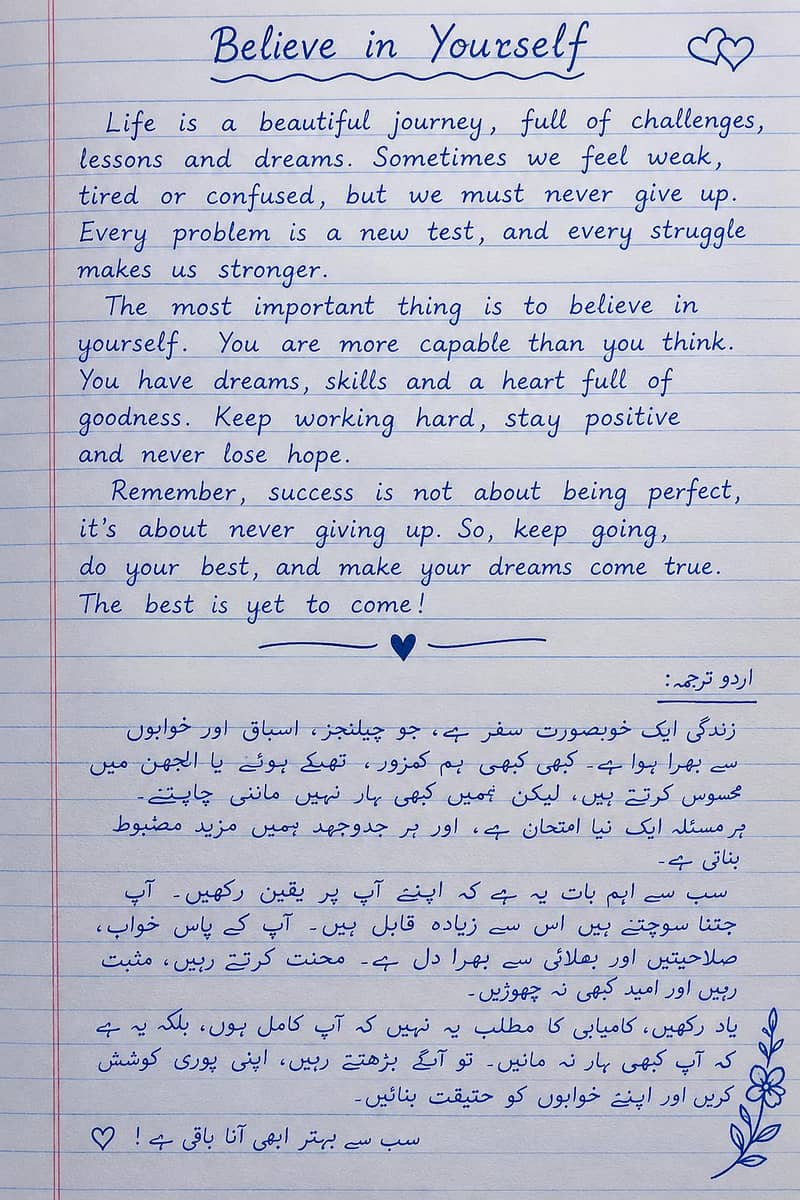 Believe in Yourself
Life is a beautiful journey, full of challenges,
lessons and dreams. Sometimes we feel weak,
tired or confused, but we must never give up.
Every problem is a new test, and every struggle
makes us stronger.
The most important thing is to believe in
yourself. You are more capable than you think.
You have dreams, skills and a heart full of
goodness. Keep working hard, stay positive
and never lose hope.
Remember, success is not about being perfect,
it's about never giving up. So, keep going,
do your best, and make your dreams come true.
The best is yet to come!
اردو ترجمہ:
زندگی ایک خوبصورت سفر ہے، جو چیلنجز، اسباق اور خوابوں
سے بھرا ہوا ہے۔ کبھی کبھی ہم کمزور، تھکے ہوئے یا الجھن میں
محسوس کرتے ہیں، لیکن ہمیں کبھی ہار نہیں ماننی چاہئے۔
ہر مسئلہ ایک نیا امتحان ہے، اور ہر جدوجھد ہمیں مزید مضبوط
بناتی ہے۔
سب سے اہم بات یہ ہے کہ اپنے آپ پر یقین رکھیں۔ آپ
جتنا سوچتے ہیں اس سے زیادہ قابل ہیں۔ آپ کے پاس خواب،
صلاحیتیں اور بھلائی سے بھرا دل ہے۔ محنت کرتے رہیں، مثبت
رہیں اور امید کبھی نہ چھوڑیں۔
یاد رکھیں، کامیابی کا مطلب یہ نہیں کہ آپ کامل ہوں، بلکہ یہ ہے
کہ آپ کبھی ہار نہ مانیں۔ تو آگے بڑھتے رہیں، اپنی پوری کوشش
کریں اور اپنے خوابوں کو حتیقت بنائیں۔
سب سے بہتر ابھی آنا باقی ہے !